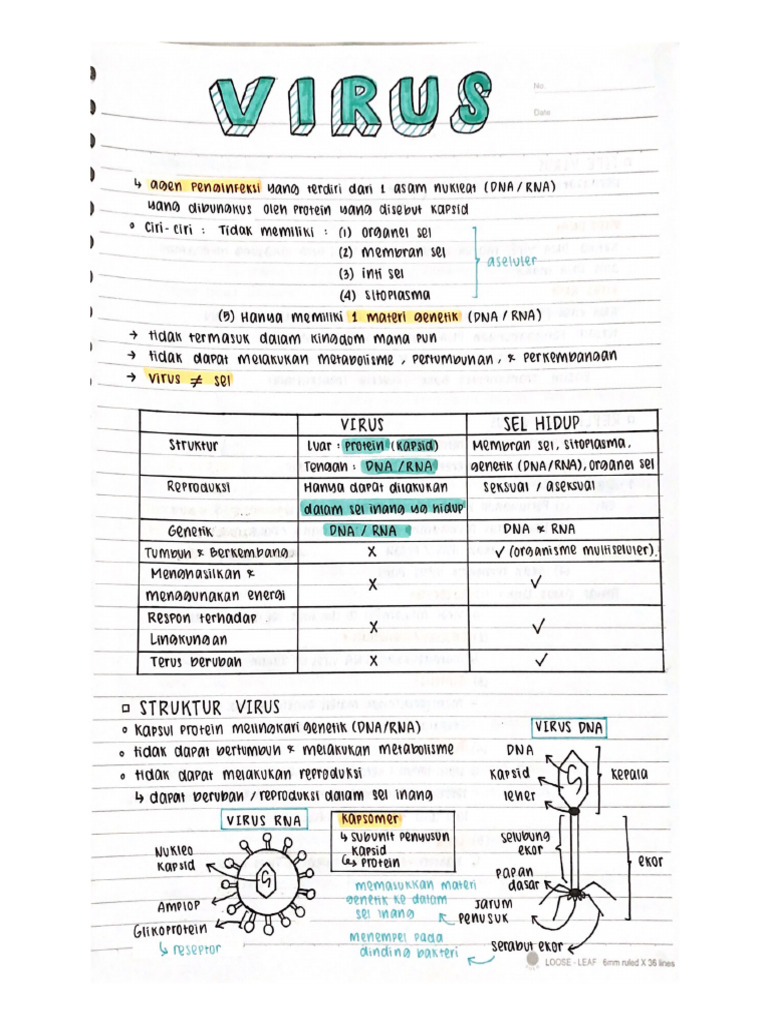 VIRUS
No.
Date
↳ agen penginfeksi yang terdiri dari 1 asam nukleat (DNA/RNA)
yang dibungkus oleh protein yang disebut kapsid
• Ciri-ciri : Tidak memiliki : (1) organel sel
(2) membran sel
(3) inti sel
(4) sitoplasma
aseluler
(5) Hanya memiliki 1 materi genetik (DNA/RNA)
→ tidak termasuk dalam kingdom mana pun
→ tidak dapat melakukan metabolisme, pertumbuhan, & perkembangan
→ virus ≠ sel
VIRUS SEL HIDUP
Struktur Luar : protein (kapsid) Membran sel, sitoplasma,
Tengah : DNA/RNA genetik (DNA/RNA), organel sel
Reproduksi Hanya dapat dilakukan seksual / aseksual
dalam sel inang yg hidup
Genetik DNA / RNA DNA & RNA
Tumbuh & berkembang X ✓ (organisme multiseluler)
Menghasilkan &
menggunakan energi X ✓
Respon terhadap
Lingkungan X ✓
Terus berubah X ✓
□ STRUKTUR VIRUS
• Kapsul protein melingkari genetik (DNA/RNA)
• tidak dapat bertumbuh & melakukan metabolisme
• tidak dapat melakukan reproduksi
↳ dapat berubah / reproduksi dalam sel inang
VIRUS RNA
Nukleo
kapsid
Amplop
Glikoprotein
↳ reseptor
Kapsomer
↳ subunit penyusun
kapsid
↳ protein
VIRUS DNA
DNA
kapsid
leher
kepala
selubung
ekor
ekor
papan
dasar
jarum
penusuk
memasukkan materi
genetik ke dalam
sel inang
serabut ekor
menempel pada
dinding bakteri
LOOSE - LEAF 6mm ruled X 36 lines